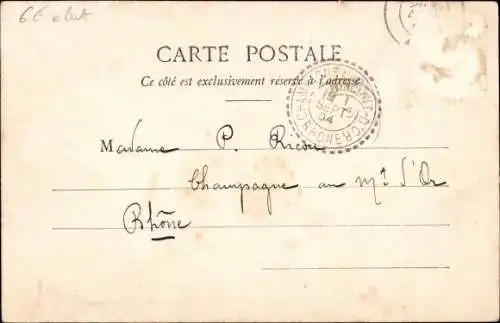 6€
CARTE POSTALE
Ce côté est exclusivement réservé à l'adresse
Madame P. Ricou
Champagne au Mt d'Or
Rhône
CHAMPAGNE
RHONE
1
SEPT
04